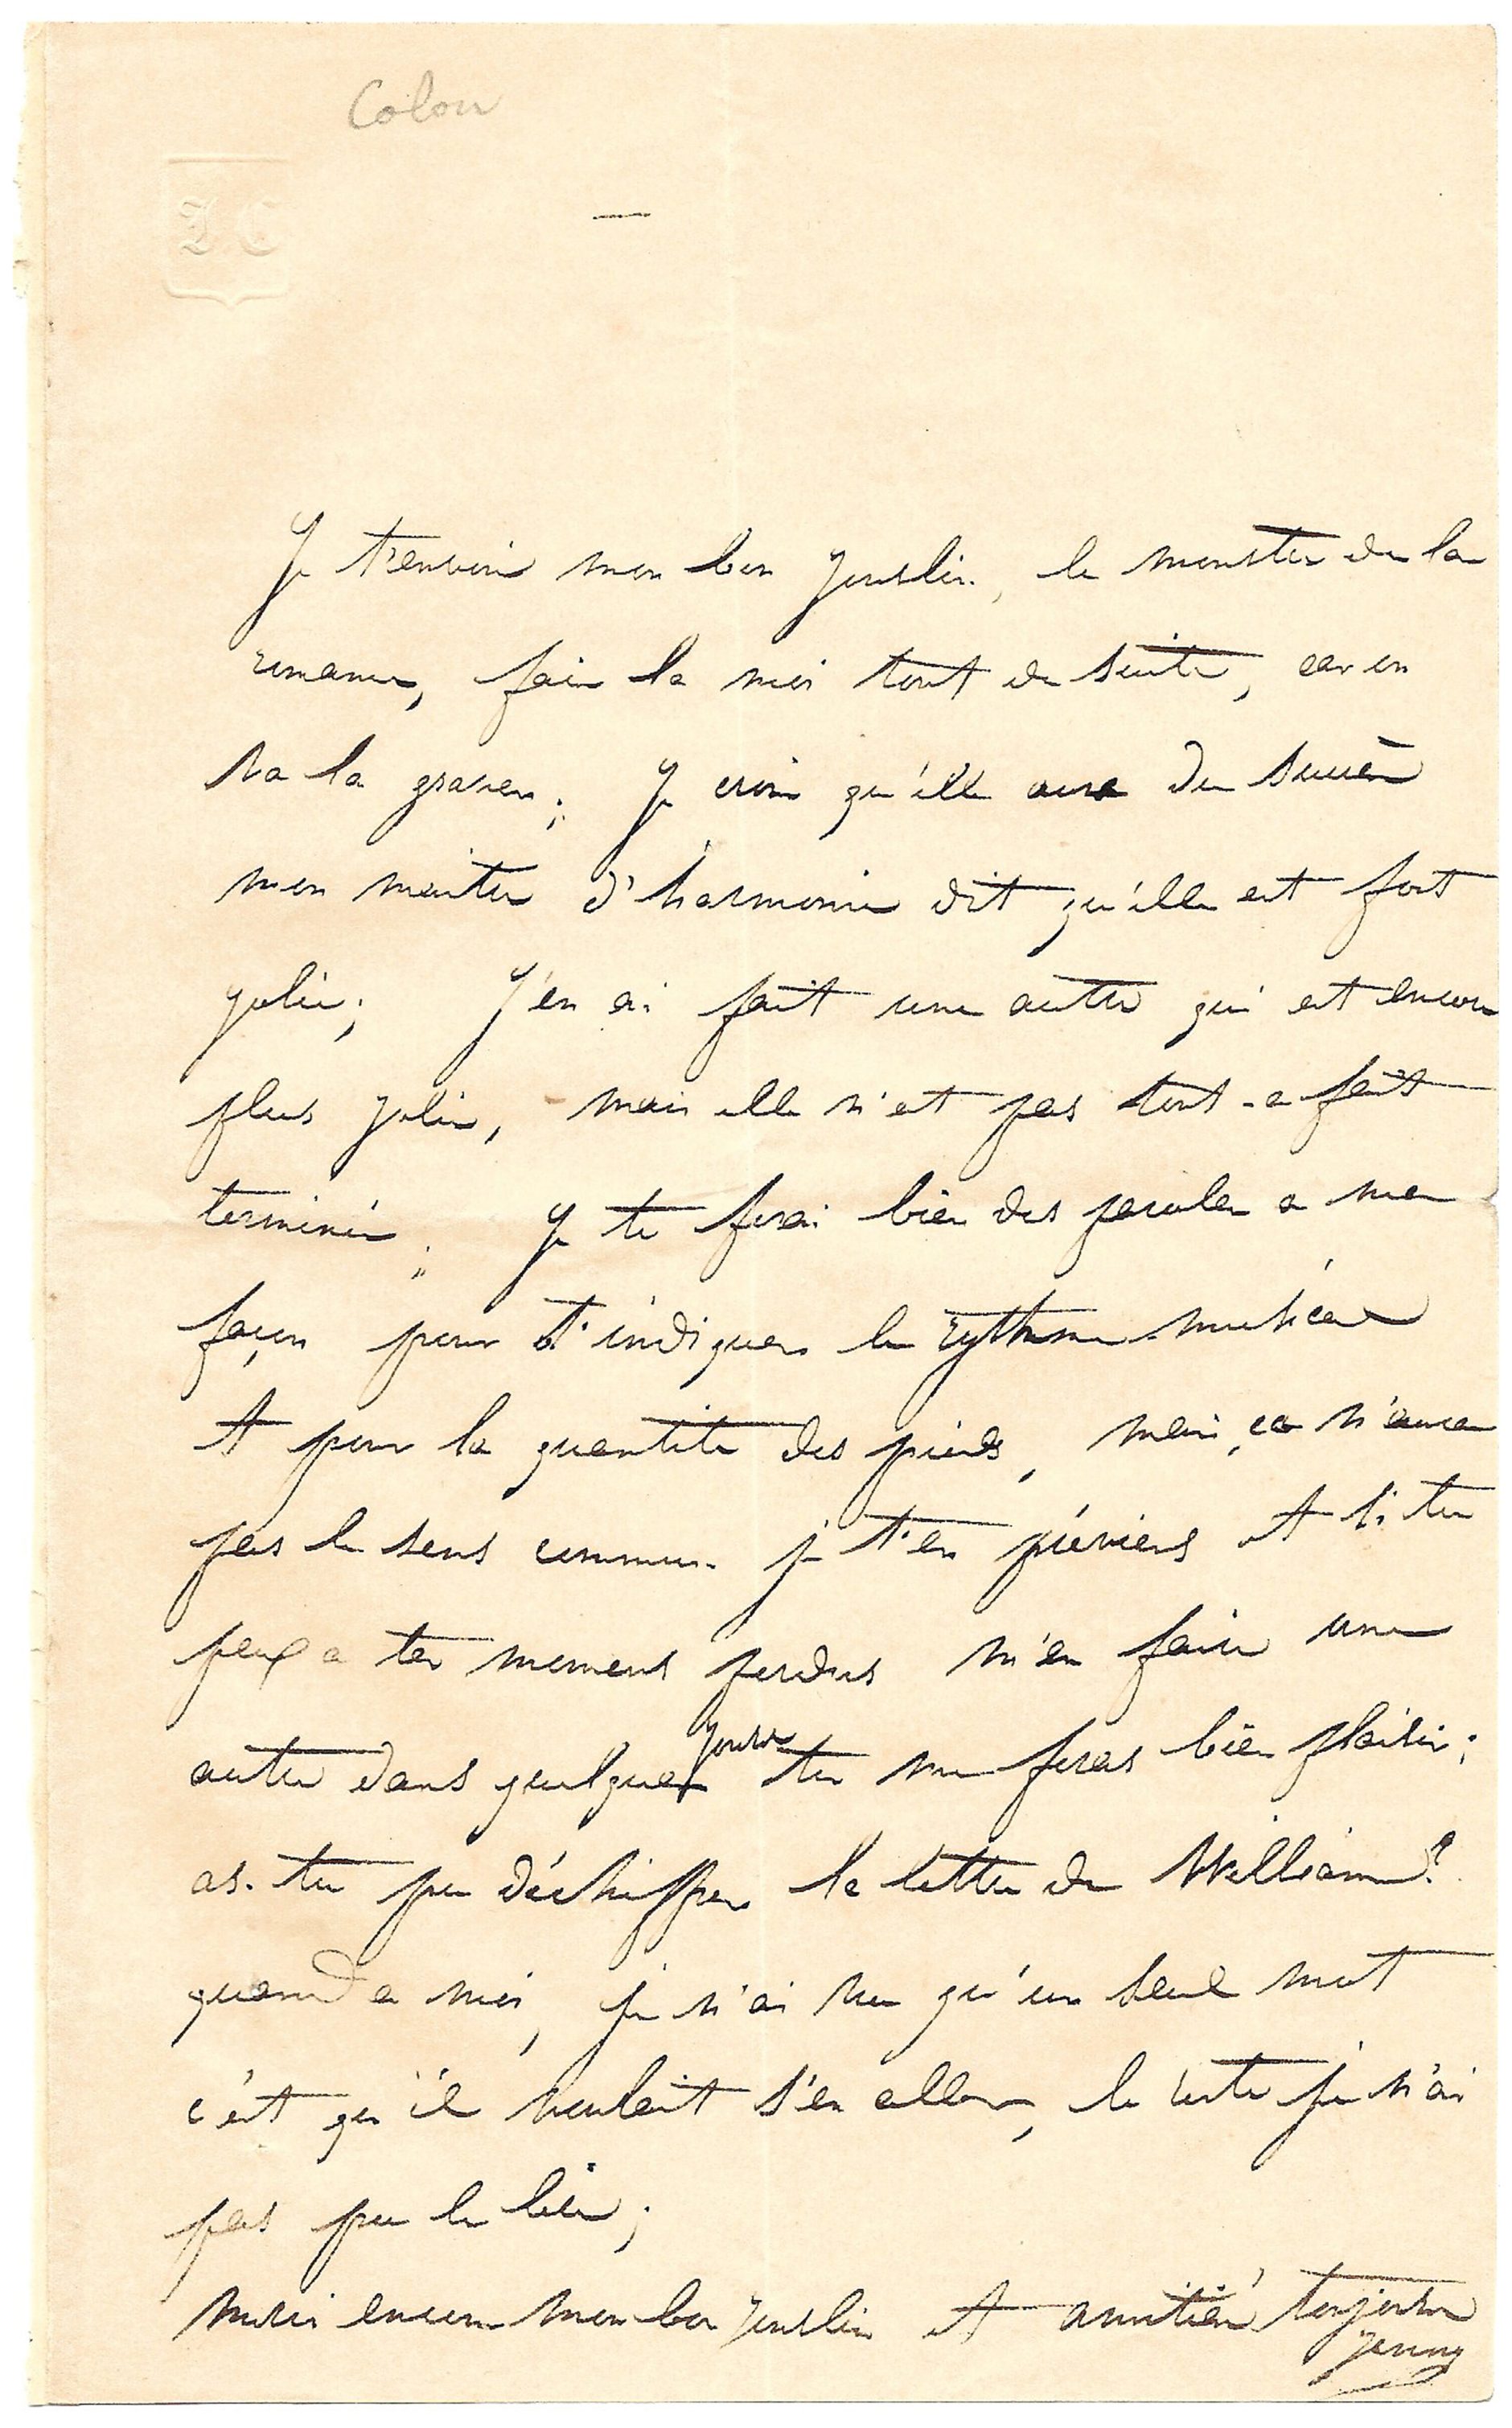 Colon
JC
Je t'envoie mon bon Jouslin, le monstre de la
romance, fais la moi tout de suite, car on
va la graver; Je crois qu'elle aura du succès
mon maitre d'harmonie dit qu'elle est fort
jolie; J'en ai fait une autre qui est encore
plus jolie, mais elle n'est pas tout-a fait
terminée; Je te ferai bien des paroles a ma
façon pour t'indiquer le rythme musical
et pour la quantité des pieds, mais ça n'aura
pas le sens commun je t'en préviens et si tu
peux a tes momens perdus m'en faire une
autre dans quelques jours tu me feras bien plaisir;
as-tu pu déchiffrer la lettre de William?
quand a moi, je n'ai vu qu'un seul mot
c'est qu'il voulait s'en aller, le reste je n'ai
pas pu le lire;
merci encore mon bon Jouslin et amitiés toujours
Jenny